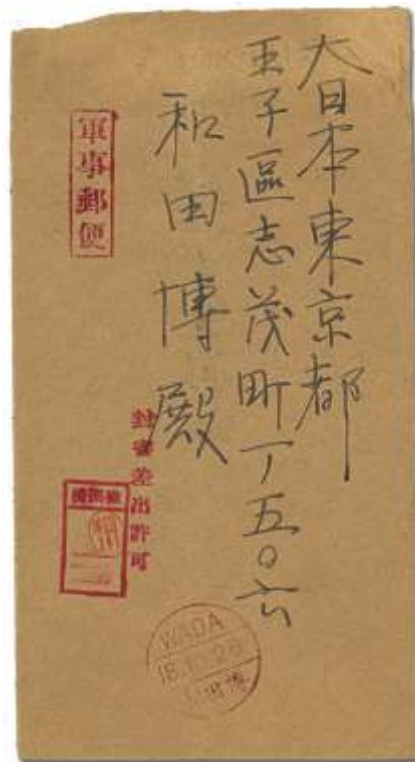 大日本東京都
王子區志茂町一ノ五〇六
和田博殿
軍事郵便
封書差出許可
檢閲濟
WADA
18.10.26